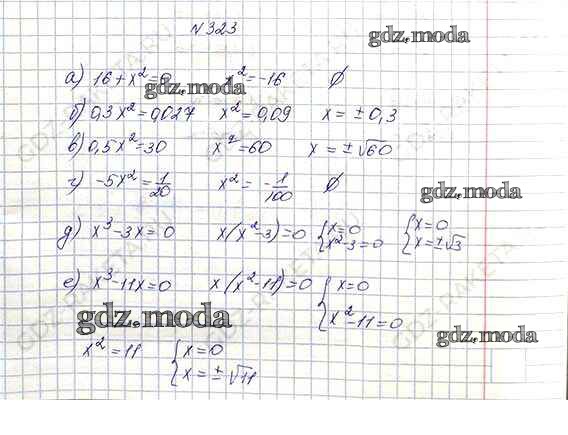 N 323
gdz.moda
а) 16+x²=0 x²=-16 ∅
gdz.moda
б) 0,3x²=0,027 x²=0,09 x=±0,3
в) 0,5x²=30 x²=60 x=±√60
г) -5x²=1/20 x²=-1/100 ∅
gdz.moda
д) x³-3x=0 x(x²-3)=0 {x=0 x²-3=0 {x=0 x=±√3
е) x³-11x=0 x(x²-11)=0 {x=0 x²-11=0
gdz.moda
gdz.moda
x²=11 {x=0 x=±√11
GDZ-RAKETA.RU
GDZ-RAKETA.RU